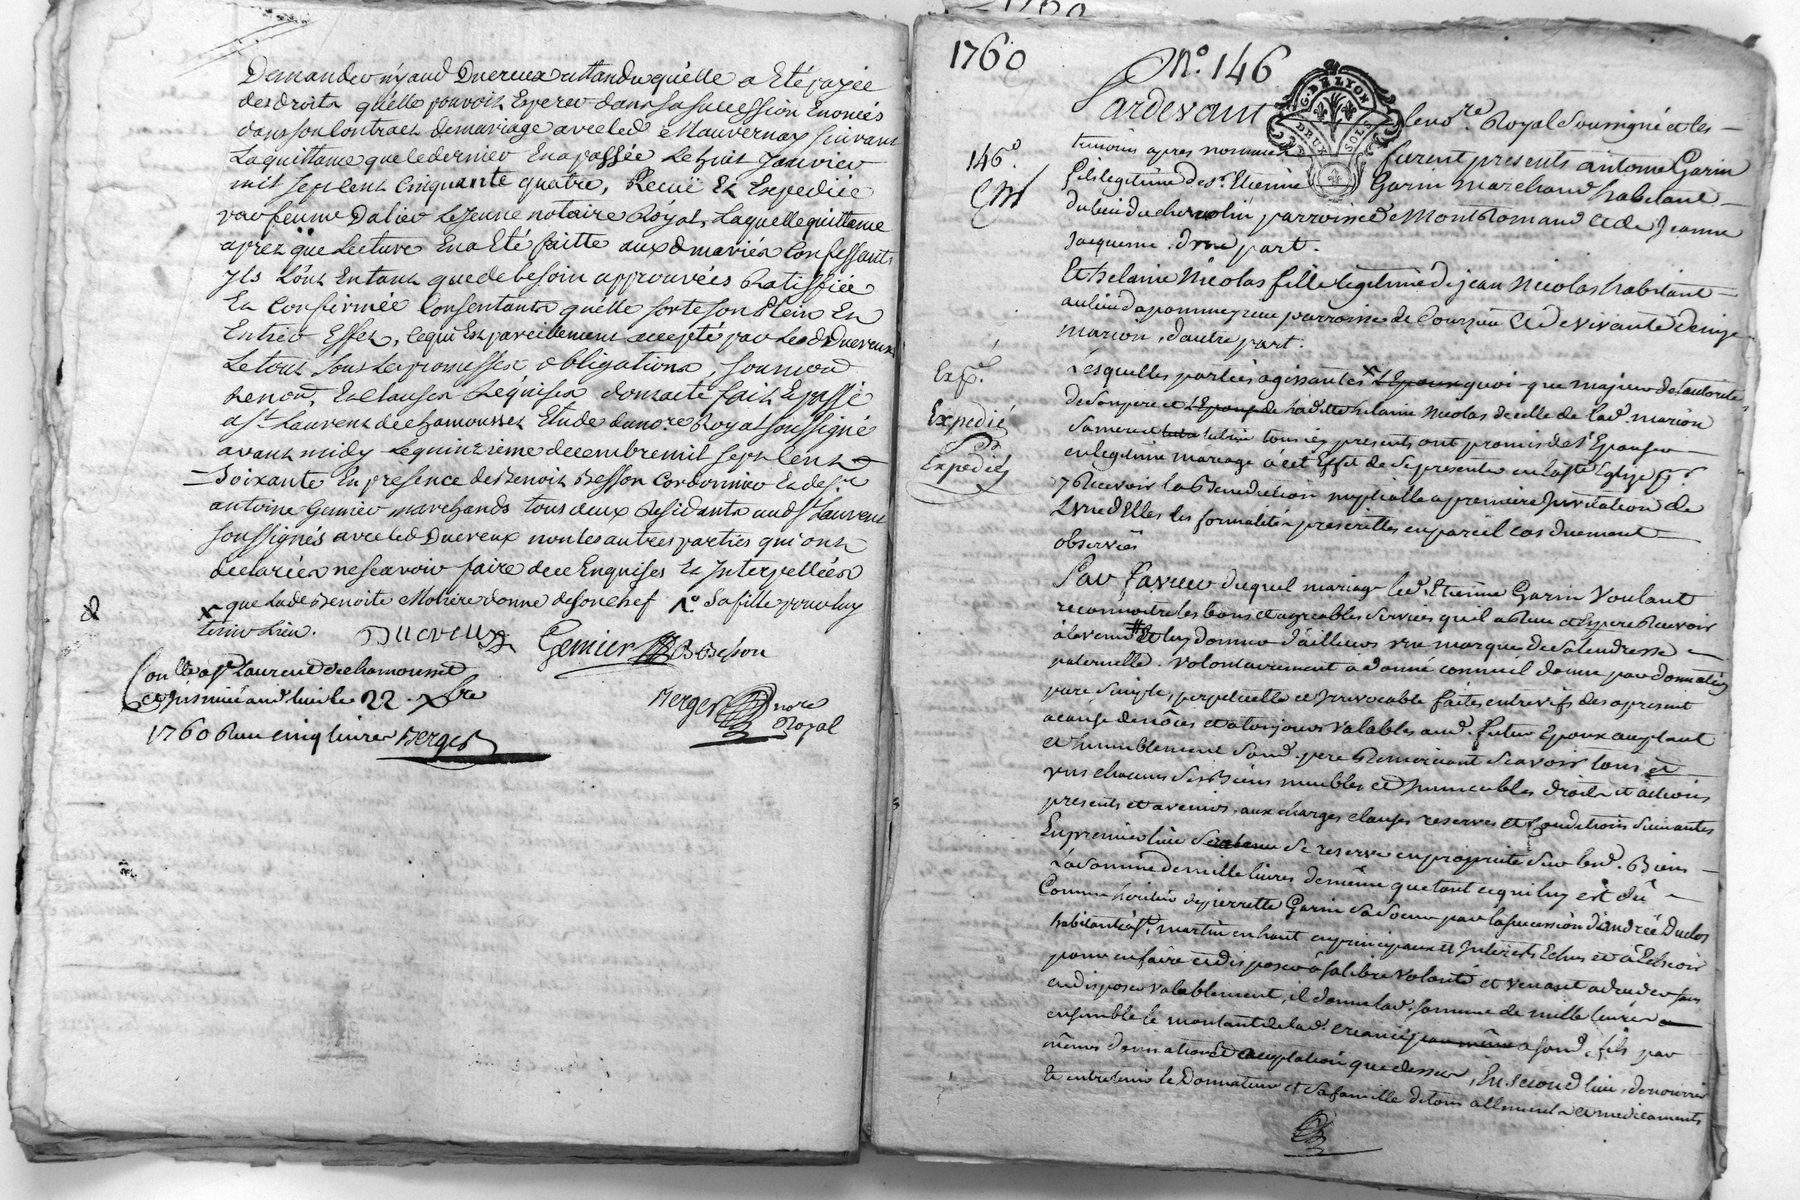 Demandeur n'yaud Duereux attandu qu'elle a Eté payée
des droits qu'elle pouvoit Esperer dans sa succession Enoncés
dans son Contract de mariage avec led e Mauvernay suivant
La quittance que le dernier En a passée Le huit Janvier
mil sept cent Cinquante quatre, Reçue Et Expediée
par feu me Dalier Le Jeune notaire Royal, Laquelle quittance
aprez que Lecture En a Eté faitte aux d mariés Confessants
Ils L'ont En tant que de besoin approuvées Ratiffiée
Et Confirmée Consentants qu'elle sorte son Plein Et
Entier Effet, Ce qui Est pareillement accepté par Led Duereux
Le tout sous Les promesses obligations, soumon
Renon, Et clauses Requises dont acte fait Et passé
a St Laurent de chamousset Etude du nore Royal soussigné
avant midy Le quinzieme decembre mil sept Cent
Soixante En presence de Benoit Besson Cordonnier Et de sr
antoine Gemier marchands tous deux Residants aud St Laurent
soussignés avec led Duereux non les autres parties qui ont
declarées ne scavoir faire de ce Enquises Et Interpellées
x que lade Benoite Moliere donne de son chef sa fille pour luy
tenir Lieu. Duereux Gemier B Besson
Conllé a St Laurent de chamousset
et Insinué aud lieu le 22 Xbre
1760 Reçu cinq livres Berger
Berger nore
Royal
1760
1760
No. 146
Pardevant
G. DE LYON
DEUX SOLS
le nore. Royal soussigné et les
146e.
CM
temoins apres nommés furent presents antoine Garin
fils legitime de sr. Etienne Garin marchand habitant
du lieu du cherolin parroisse de Montromand et de Jeanne
Jacqueme. d'une part.
Et helaine Nicolas fille legitime de jean Nicolas habitant
au lieu de pommeyreux parroisse de Courzieu et de vivante Denize
marion, d'autre part.
Exp.
Lesquelles parties agissantes x L'Epoux quoi que majeur de l'autorité
de son pere et L'Epouse de ladite helaine Nicolas de celle de lad. marion
Expedié
sa mere tous icy presents ont promis de s'Epouser
Expediés
en legitime mariage a cet Effet de se presenter en la ste Eglise pr
y Recevoir la Benediction nuptialle a premiere Invitation de
L'une d'Elles les formalités prescrittes en pareil cas duement
observées
Par faveur duquel mariage led. Etienne Garin voulant
reconnoitre les bons et agreables services qu'il a Reçu et Espere Recevoir
a l'avenir et luy donner d'ailleurs une marque de sa tendresse
paternelle. volontairement a donné comme il donne par donnation
pure simple, perpetuelle et Irrevocable faites entre vifs des a present
a cause de nôces et a toujours valables aud. futur Epoux acceptant
et humblement sond. pere Remerciant sçavoir tous et
uns chacuns ses Biens meubles et Immeubles droits et actions
presents et avenirs, aux charges clauses reserves et Conditions suivantes
En premier lieu se reserve en propriete sur lesd. Biens
La somme de mille livres de même que tout ce qui luy est dû
Comme heritier de pierrette Garin sa soeur par la succession d'andrée Duclos
habitante a st. martin en haut en principaux et Interets Echus et a Echeoir
pour en faire et disposer a sa libre volonté et venant a deceder sans
en disposer valablement, il donne lad. somme de mille livres
ensemble le montant de lad. creance a sond. fils par
mêmes donnation et acceptation que dessus, En second lieu, de nourrir
et entretenir le Donnateur et sa famille de tous alliments et medicaments